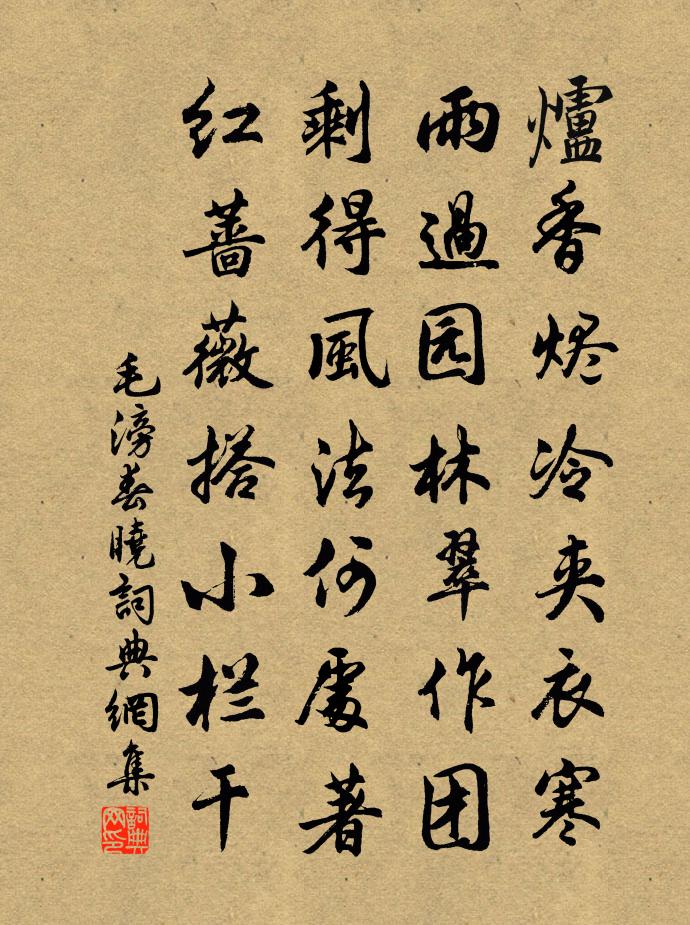 爐香烬冷夹衣寒
雨過园林翠作团
剩得風法何處著
红薔薇搭小栏干
毛滂春曉詞典網集
詞典网印